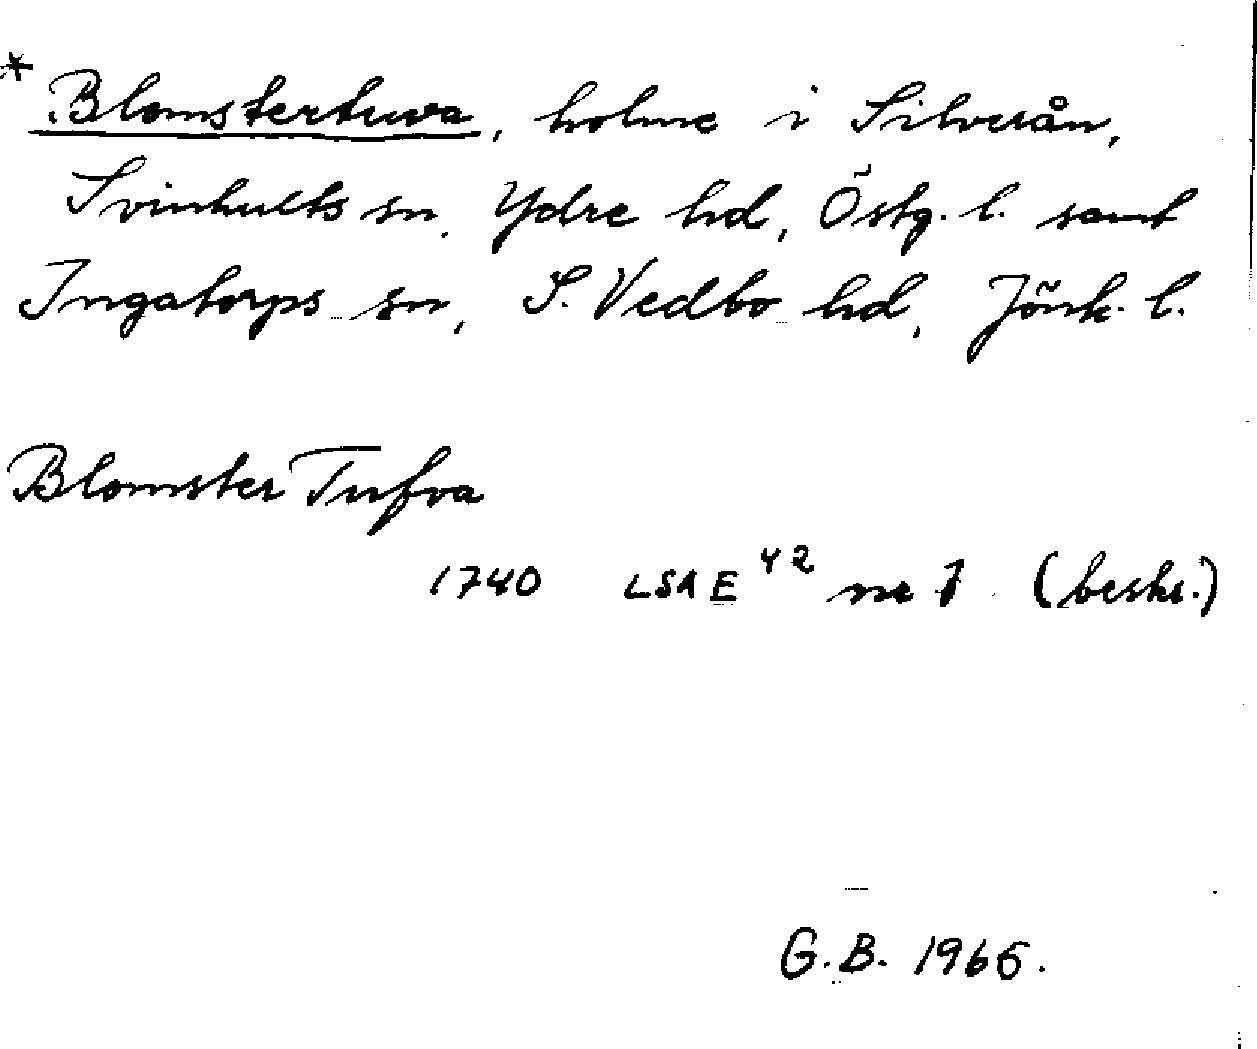 * Blomstertuva, holme i Silverån,
Svinhults sn, Ydre hd, Östg. l. samt
Ingatorps sn, S. Vedbo hd, Jönk. l.
Blomster Tufva
1740 LSA E 42 nr 1 (beskr.)
G.B. 1966.